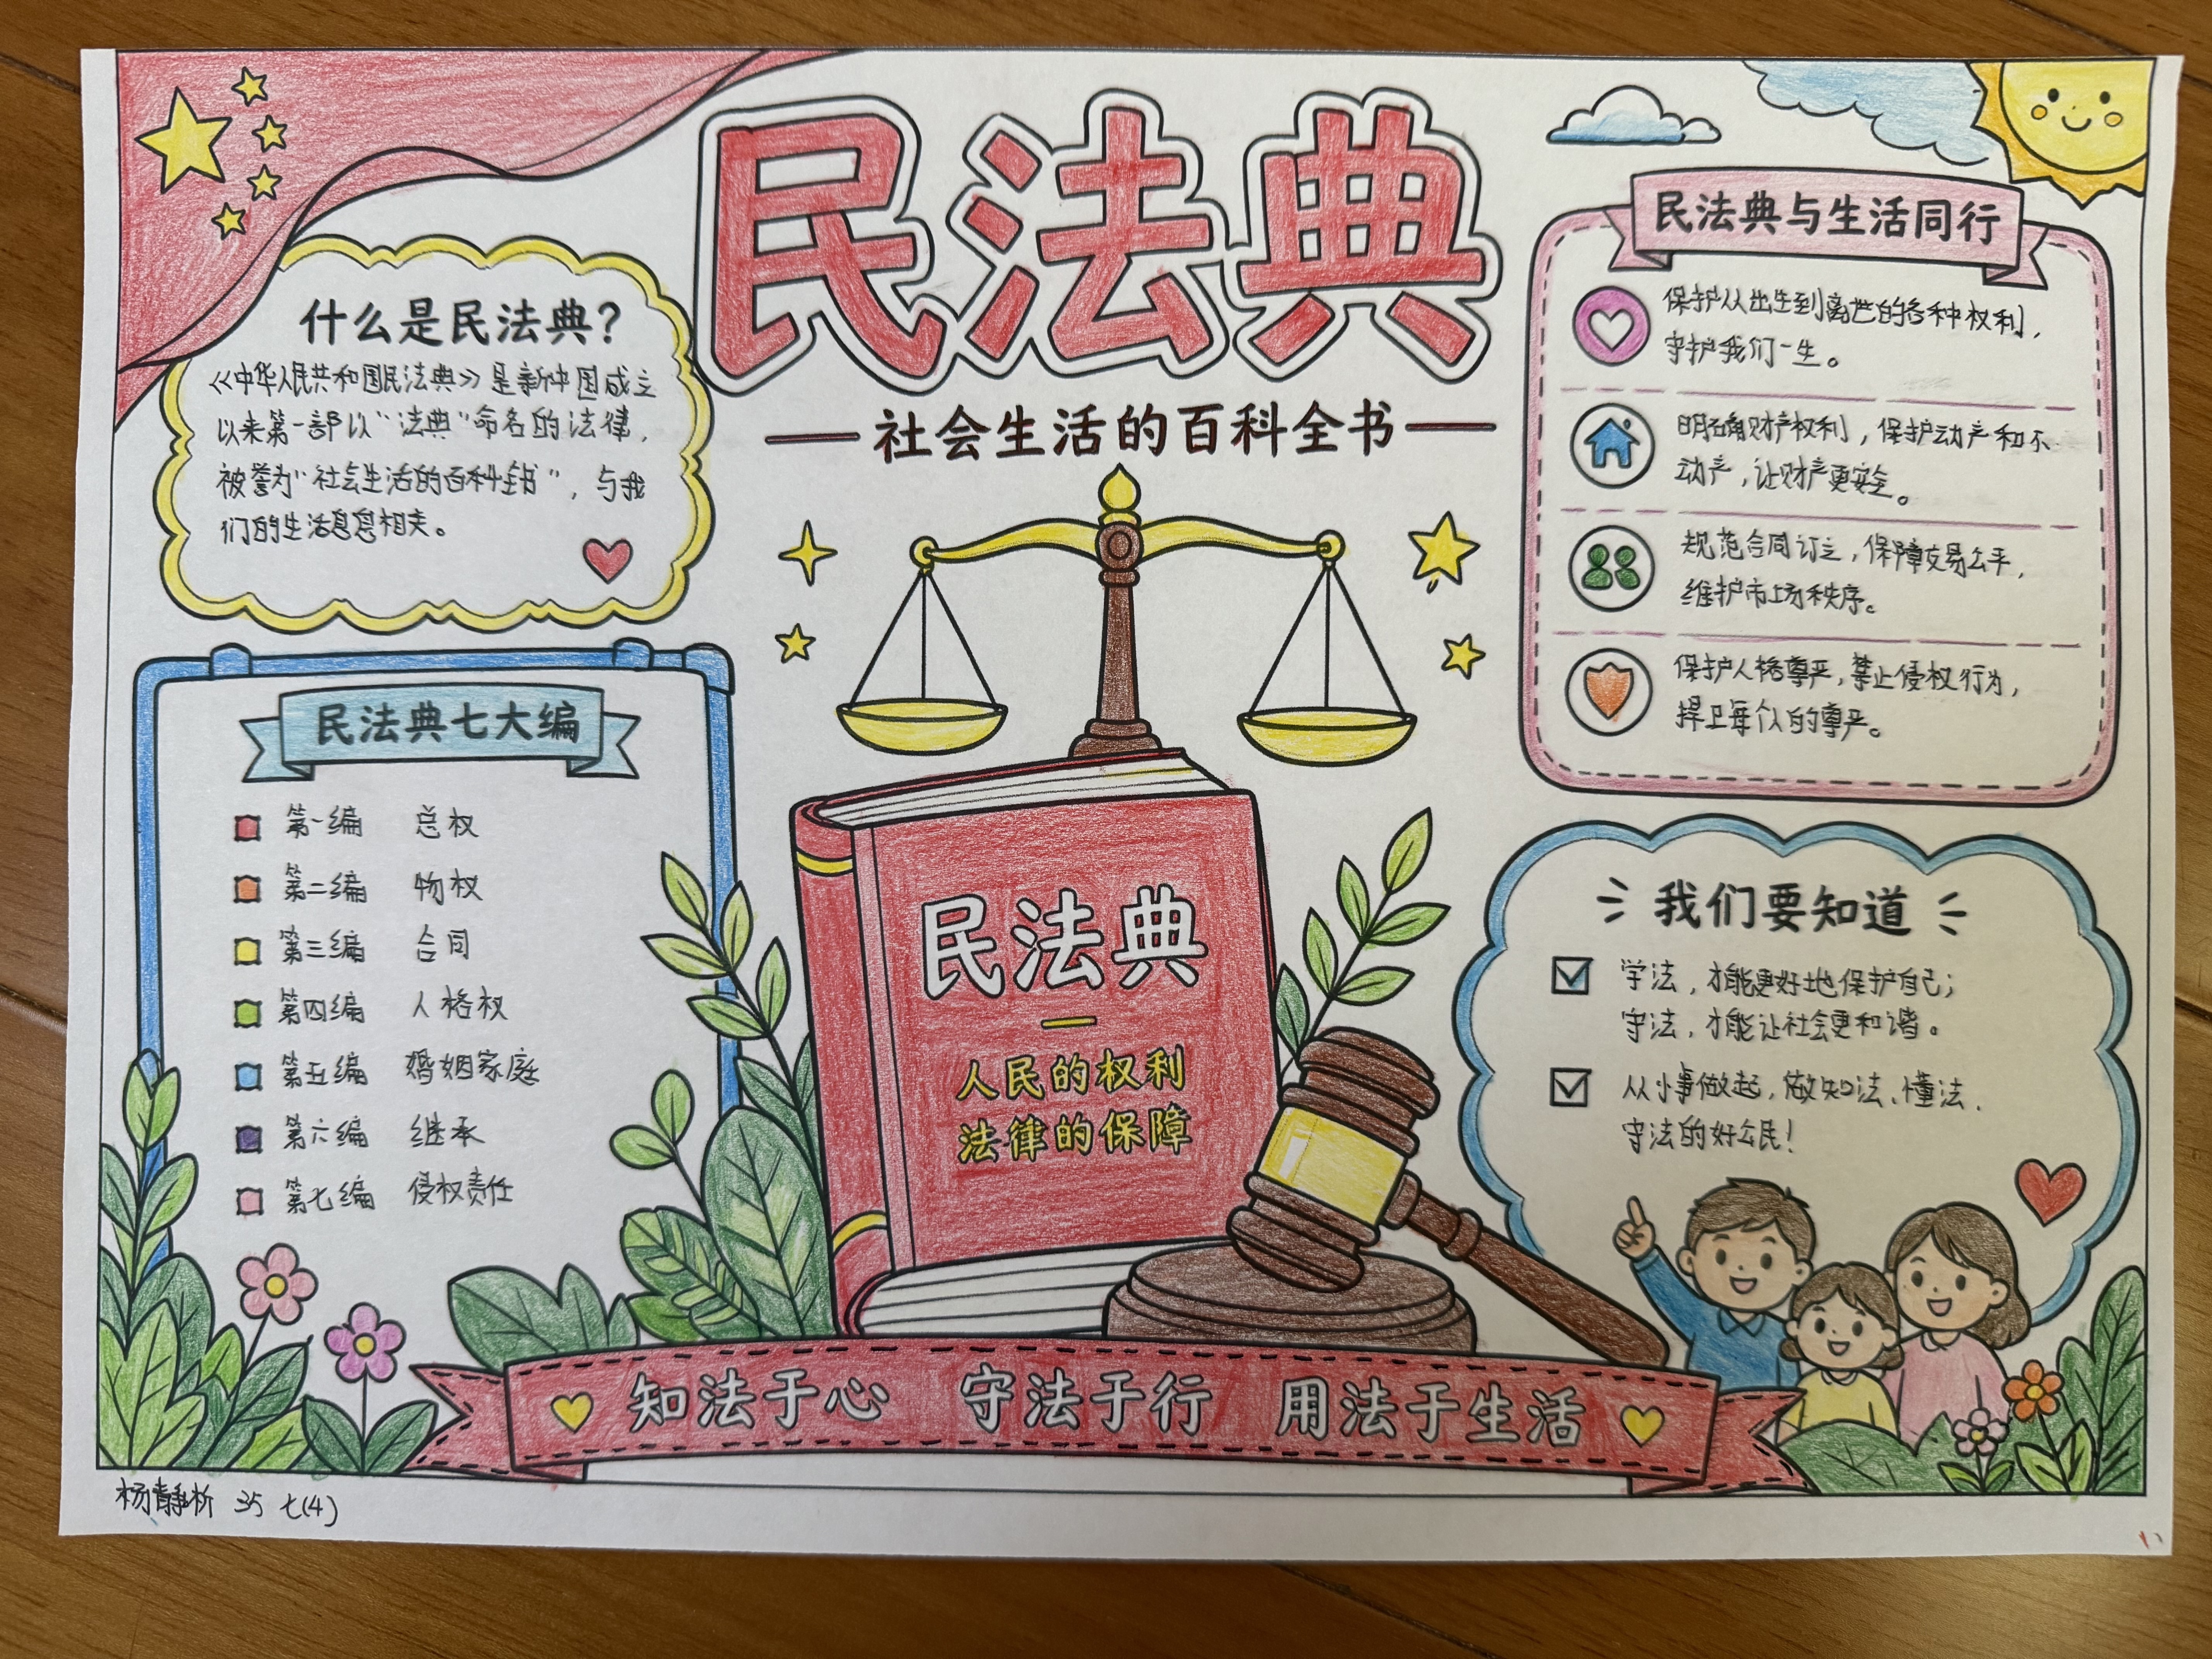 民法典
社会生活的百科全书
什么是民法典?
《中华人民共和国民法典》是新中国成立
以来第一部以“法典”命名的法律,
被誉为“社会生活的百科全书”,与我
们的生活息息相关。
民法典七大编
第一编 总权
第二编 物权
第三编 合同
第四编 人格权
第五编 婚姻家庭
第六编 继承
第七编 侵权责任
民法典
人民的权利
法律的保障
民法典与生活同行
保护从出生到离世的各种权利,
守护我们一生。
明确财产权利,保护动产和不
动产,让财产更安全。
规范合同订立,保障交易公平,
维护市场秩序。
保护人格尊严,禁止侵权行为,
捍卫每个人的尊严。
我们要知道
学法,才能更好地保护自己;
守法,才能让社会更和谐。
从小事做起,做知法、懂法、
守法的好公民!
知法于心 守法于行 用法于生活
杨静析 35 七(4)